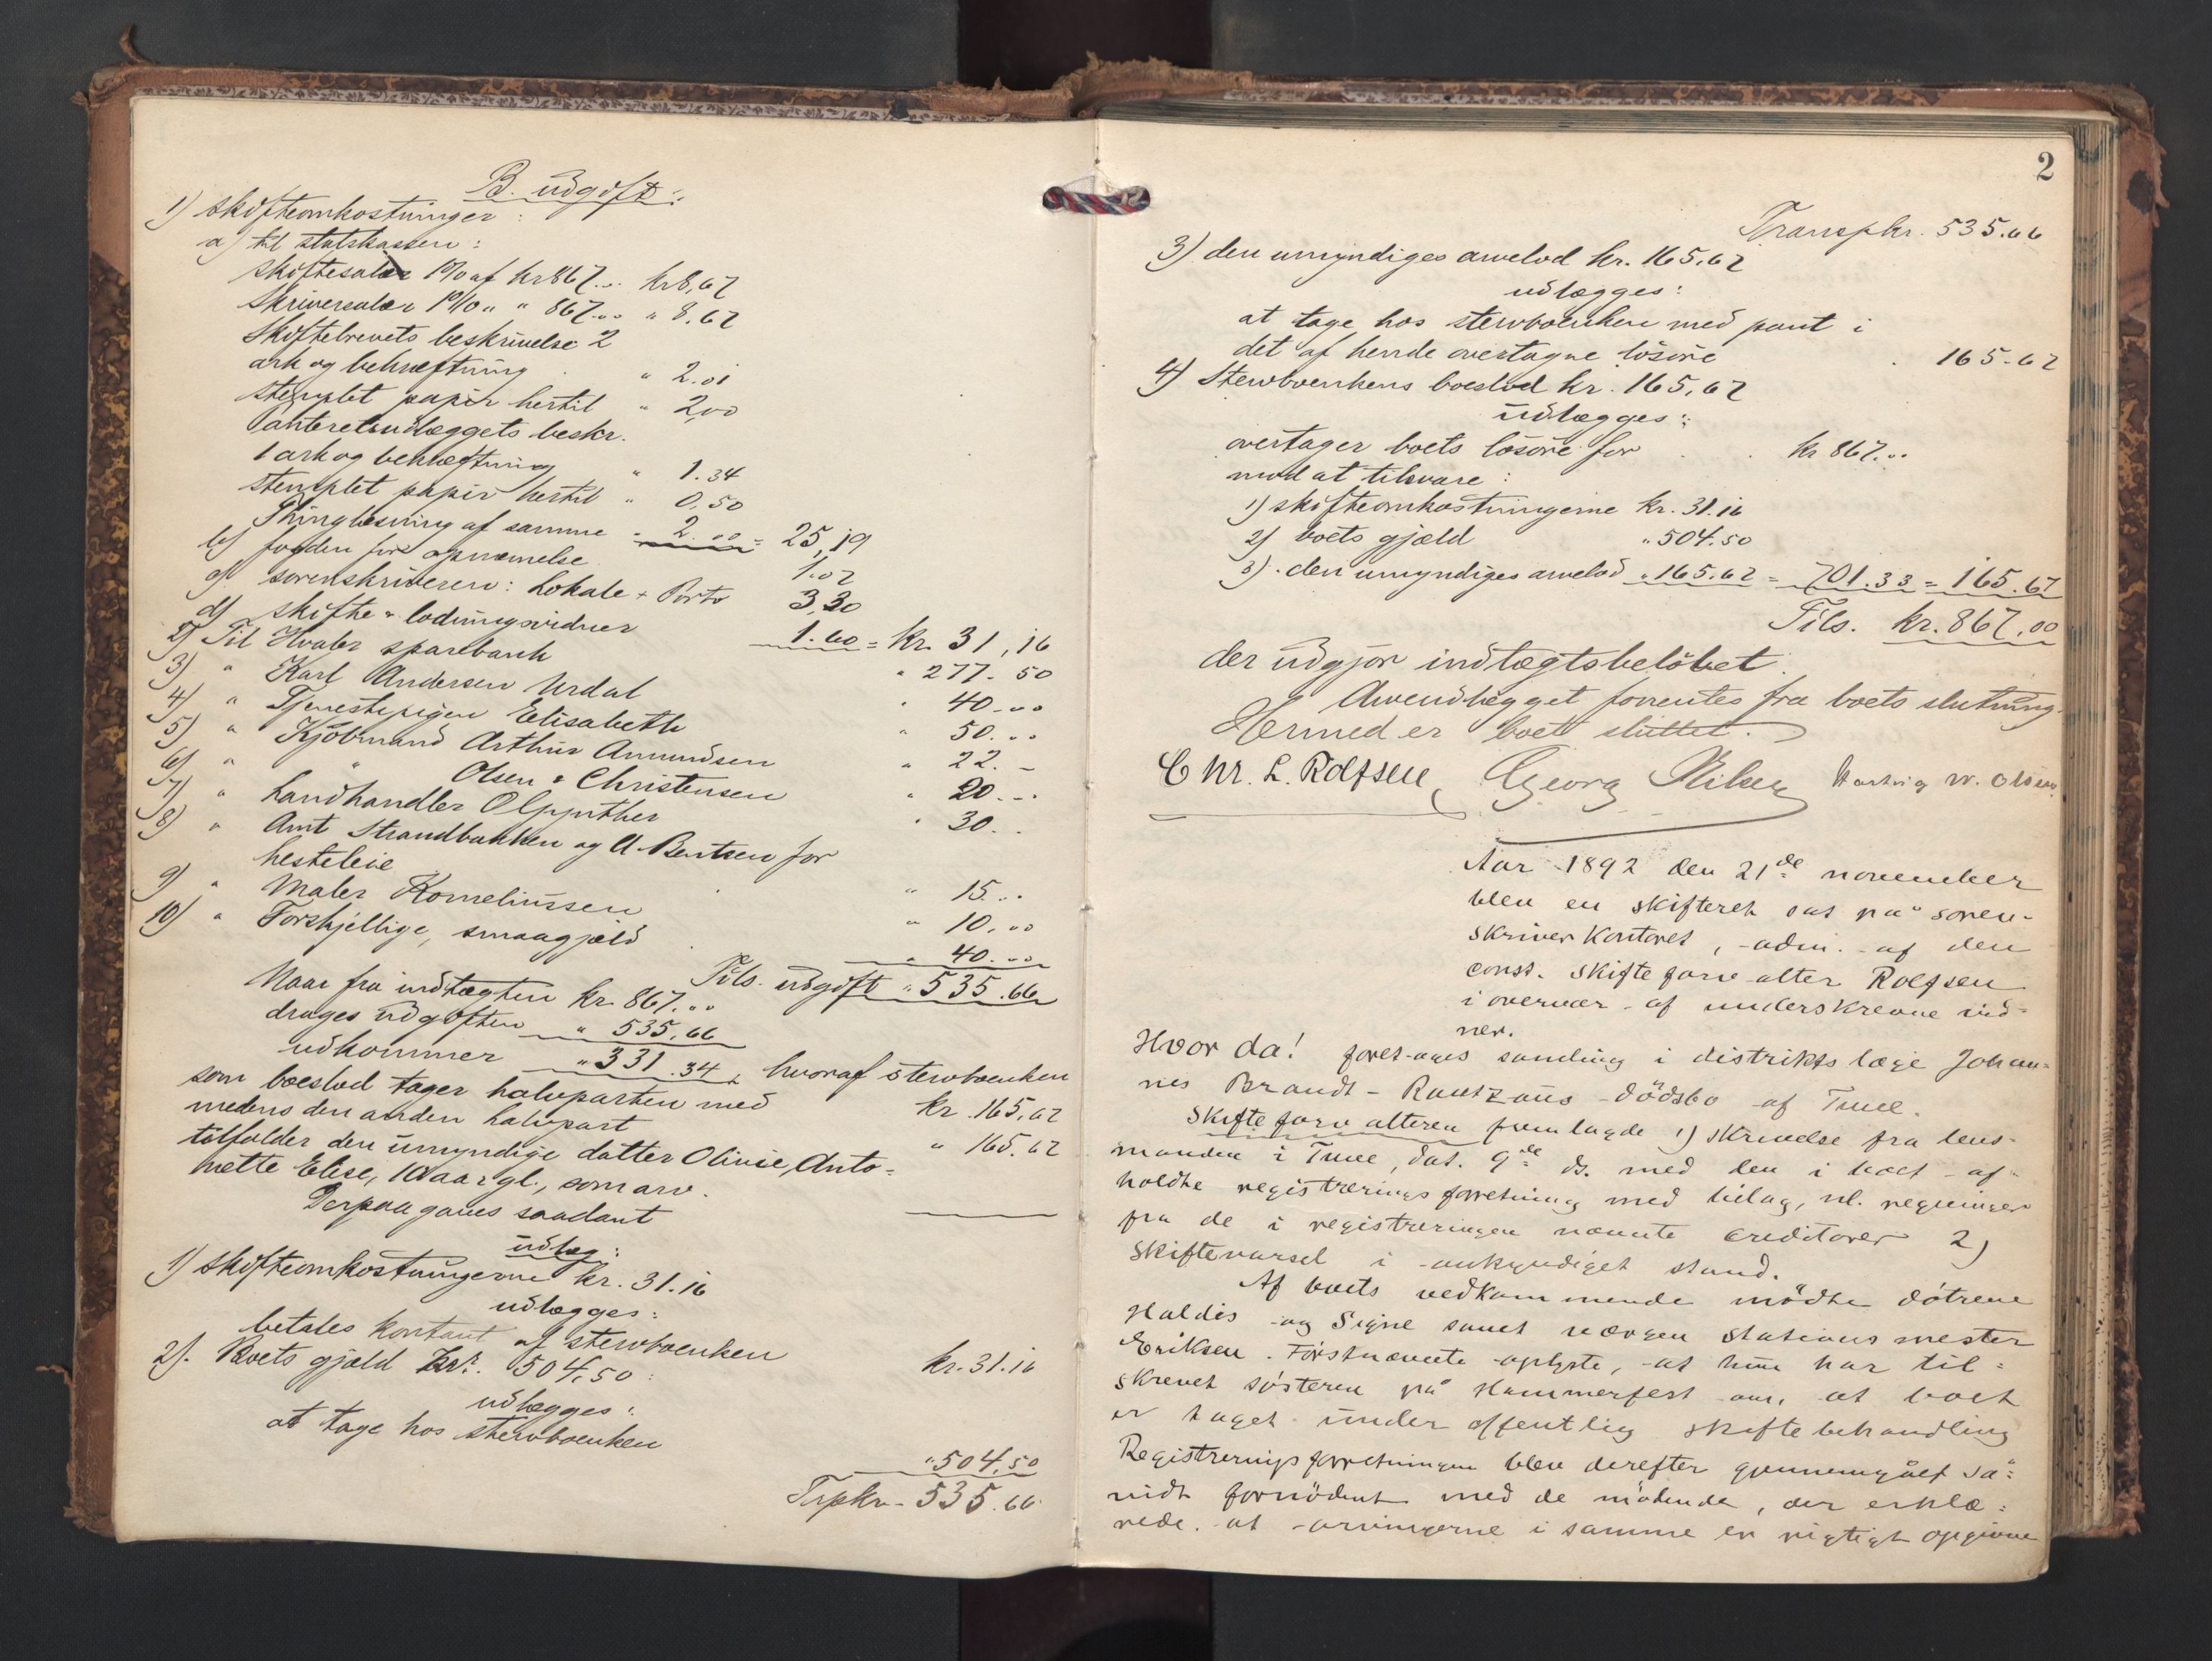 B. udgift:
1) skifteomkostninger:
a) til statskassen:
skiftesalær 1% af kr 867... kr 8,67
skriversalær 1% " " 867... " 8.67
skiftebrevets beskrivelse 2
ark og bekræftning " 2.01
stemplet papir hertil " 2,00
Panteretsudlæggets beskr.
1 ark og bekræftning " 1.34
stemplet papir hertil " 0,50
Thinglæsning af samme " 2.00 = 25,19
b) fogden for opnævnelse 1.07
c) sorenskriveren: Lokale + Porto 3,30
d) skifte- & lodningsvidner 1.60 = kr. 31,16
2) Til Hvaler sparebank " 277.50
3) " Karl Andersen Urdal " 40...
4) " Tjenestepigen Elisabeth " 50...
5) " Kjøbmand Arthur Amundsen " 22.-
6) " " Olsen & Christensen " 20.--
7) " Landhandler O Gynther " 30..
8) " Amt Strandbakken og A. Bentsen for
hesteleie " 15...
9) " Maler Korneliussen " 10,..
10) " Forskjellige, smaagjæld " 40...
Tils. udgift " 535.66
Naar fra indtægten kr. 867...
drages udgiften " 535,66
udkommer " 331.34, hvoraf stervboenken
som boeslod tager halvparten med kr. 165,67
medens den anden halvpart
tilfalder den umyndige datter Olivie Anto- " 165.67
nette Elise, 10 aar gl., som arv.
Derpaa gaves saadant
udlæg:
1) skifteomkostningerne kr. 31.16
udlægges:
betales kontant af stervboenken kr. 31.16
2). Boets gjæld kr. 504,50:
udlægges:
at tage hos stervboenken " 504,50
Trpkr- 535.66
2
Transpkr. 535.66
3) den umyndiges arvelod kr. 165,67
udlægges:
at tage hos stervboenken med pant i
det af hende overtagne løsøre 165.67
4) Stervboenkens boeslod kr. 165,67
udlægges:
overtager boets løsøre for kr 867...
mod at tilsvare:
1) skifteomkostningerne kr. 31.16
2) boets gjæld " 504.50
3). den umyndiges arvelod " 165.67 = 701.33 = 165.67
Tils. kr. 867,00
der udgjør indtægtsbeløbet.
Arveudlægget forrentes fra boets slutning.
Hermed er boet sluttet.
Chr. L. Rolfsen, Georg Nilsen Hartvig W. Olsen
Aar 1892 den 21de november
blev en skifteret sat på soren-
skriverkontoret, adm. af den
const. skifteforvalter Rolfsen
i overvær af underskrevne vid-
ner.
Hvor da! foretages samling i distriktslæge Johan-
nes Brandt-Rantzaus dødsbo af Tune.
Skifteforvalteren fremlagde 1) skrivelse fra lens-
manden i Tune, dat. 9de ds. med den i boet af-
holdte registreringsforretning med bilag, nl. regninger
fra de i registreringen nævnte creditorer 2)
skiftevarsel i forkyndiget stand.
Af boets vedkommende mødte døtrene
Haldis og Signe samt værgen stationsmester
Eriksen. Førstnævnte oplyste, at hun har til-
skrevet søsteren på Hammerfest om, at boet
er taget under offentlig skiftebehandling
Registreringsforretningen blev derefter gjennemgået så-
vidt fornødent med de mødende, der erklæ-
rede, at arvingerne i samme er rigtigt opgivne